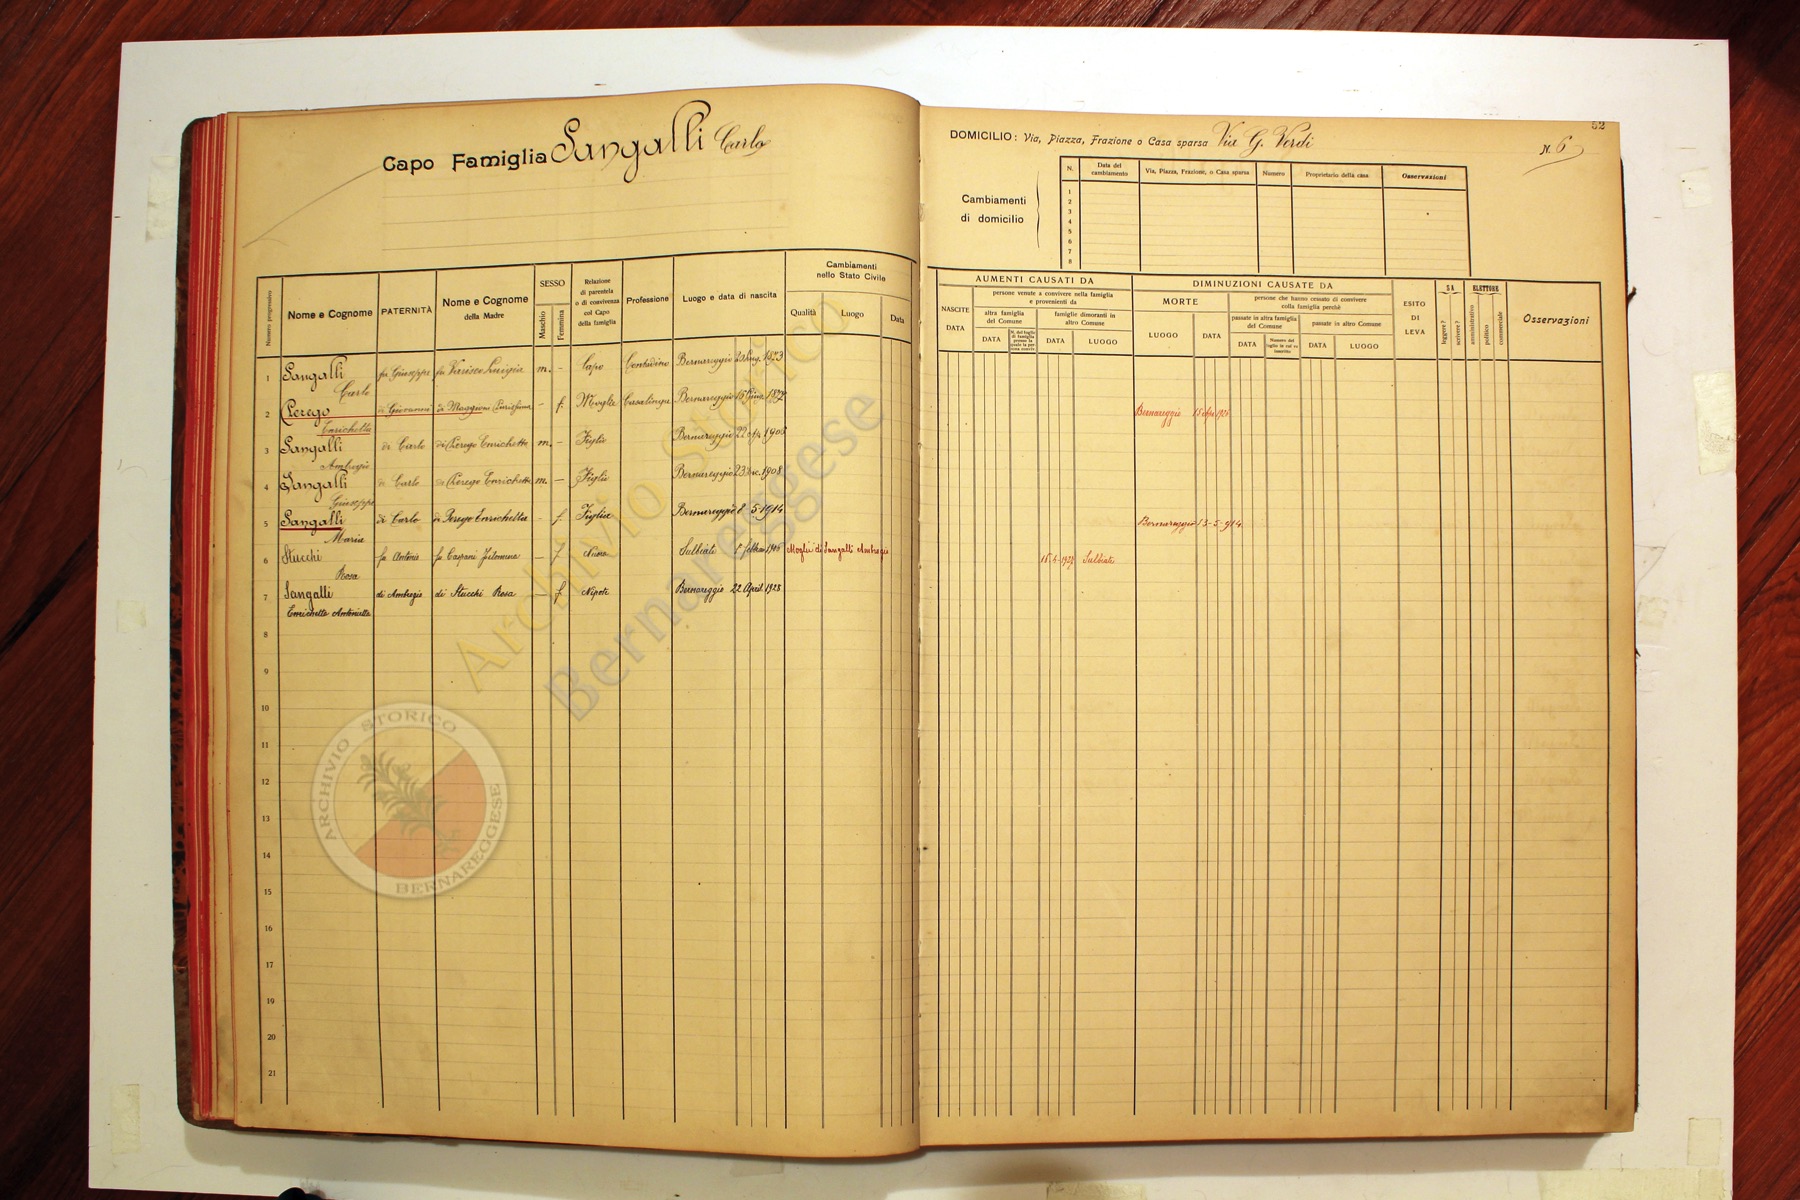 Capo Famiglia Sangalli Carlo
Numero progressivo
Nome e Cognome
PATERNITÀ
Nome e Cognome
della Madre
SESSO
Maschio
Femmina
Relazione
di parentela
o di convivenza
col Capo
della famiglia
Professione
Luogo e data di nascita
Cambiamenti
nello Stato Civile
Qualità
Luogo
Data
1 Sangalli fu Giuseppe fu Varisco Luigia m. - Capo Contadino Bernareggio 1873
Carlo
2 Perego di Giovanni di Maggioni - f. Moglie Casalinga Bernareggio 15
Enrichetta
3 Sangalli di Carlo di Perego Enrichetta m. - Figlio Bernareggio 22
Ambrogio
4 Sangalli di Carlo di Perego Enrichetta m. - Figlio Bernareggio 23 1908
Giuseppe
5 Sangalli di Carlo di Perego Enrichetta - f. Figlia Bernareggio 8 5 1914
Maria
6 Stucchi fu Antonio fu Caspani Filomena - f. Nuora Sulbiate Moglie di Sangalli Ambrogio
Rosa
7 Sangalli di Ambrogio di Stucchi Rosa - f. Nipote Bernareggio 22 April. 1928
Enrichetta Antonietta
8
9
10
11
12
13
14
15
16
17
19
20
21
52
DOMICILIO: Via, Piazza, Frazione o Casa sparsa Via G. Verdi
N. 6
Cambiamenti
di domicilio
N.
Data del
cambiamento
Via, Piazza, Frazione, o Casa sparsa
Numero
Proprietario della casa
Osservazioni
1
2
3
4
5
6
7
8
AUMENTI CAUSATI DA
NASCITE
DATA
persone venute a convivere nella famiglia
e provenienti da
altra famiglia
del Comune
DATA
famiglie dimoranti in
altro Comune
DATA
LUOGO
DIMINUZIONI CAUSATE DA
MORTE
LUOGO
DATA
persone che hanno cessato di convivere
colla famiglia perchè
passate in altra famiglia
del Comune
DATA
passate in altro Comune
DATA
LUOGO
ESITO
DI
LEVA
SA
leggere?
scrivere?
ELETTORE
amministrativo
politico
commerciale
Osservazioni
Bernareggio 15
Bernareggio 13-5-914
Sulbiate
Archivio Storico
Bernareggese
ARCHIVIO STORICO
BERNAREGGESE